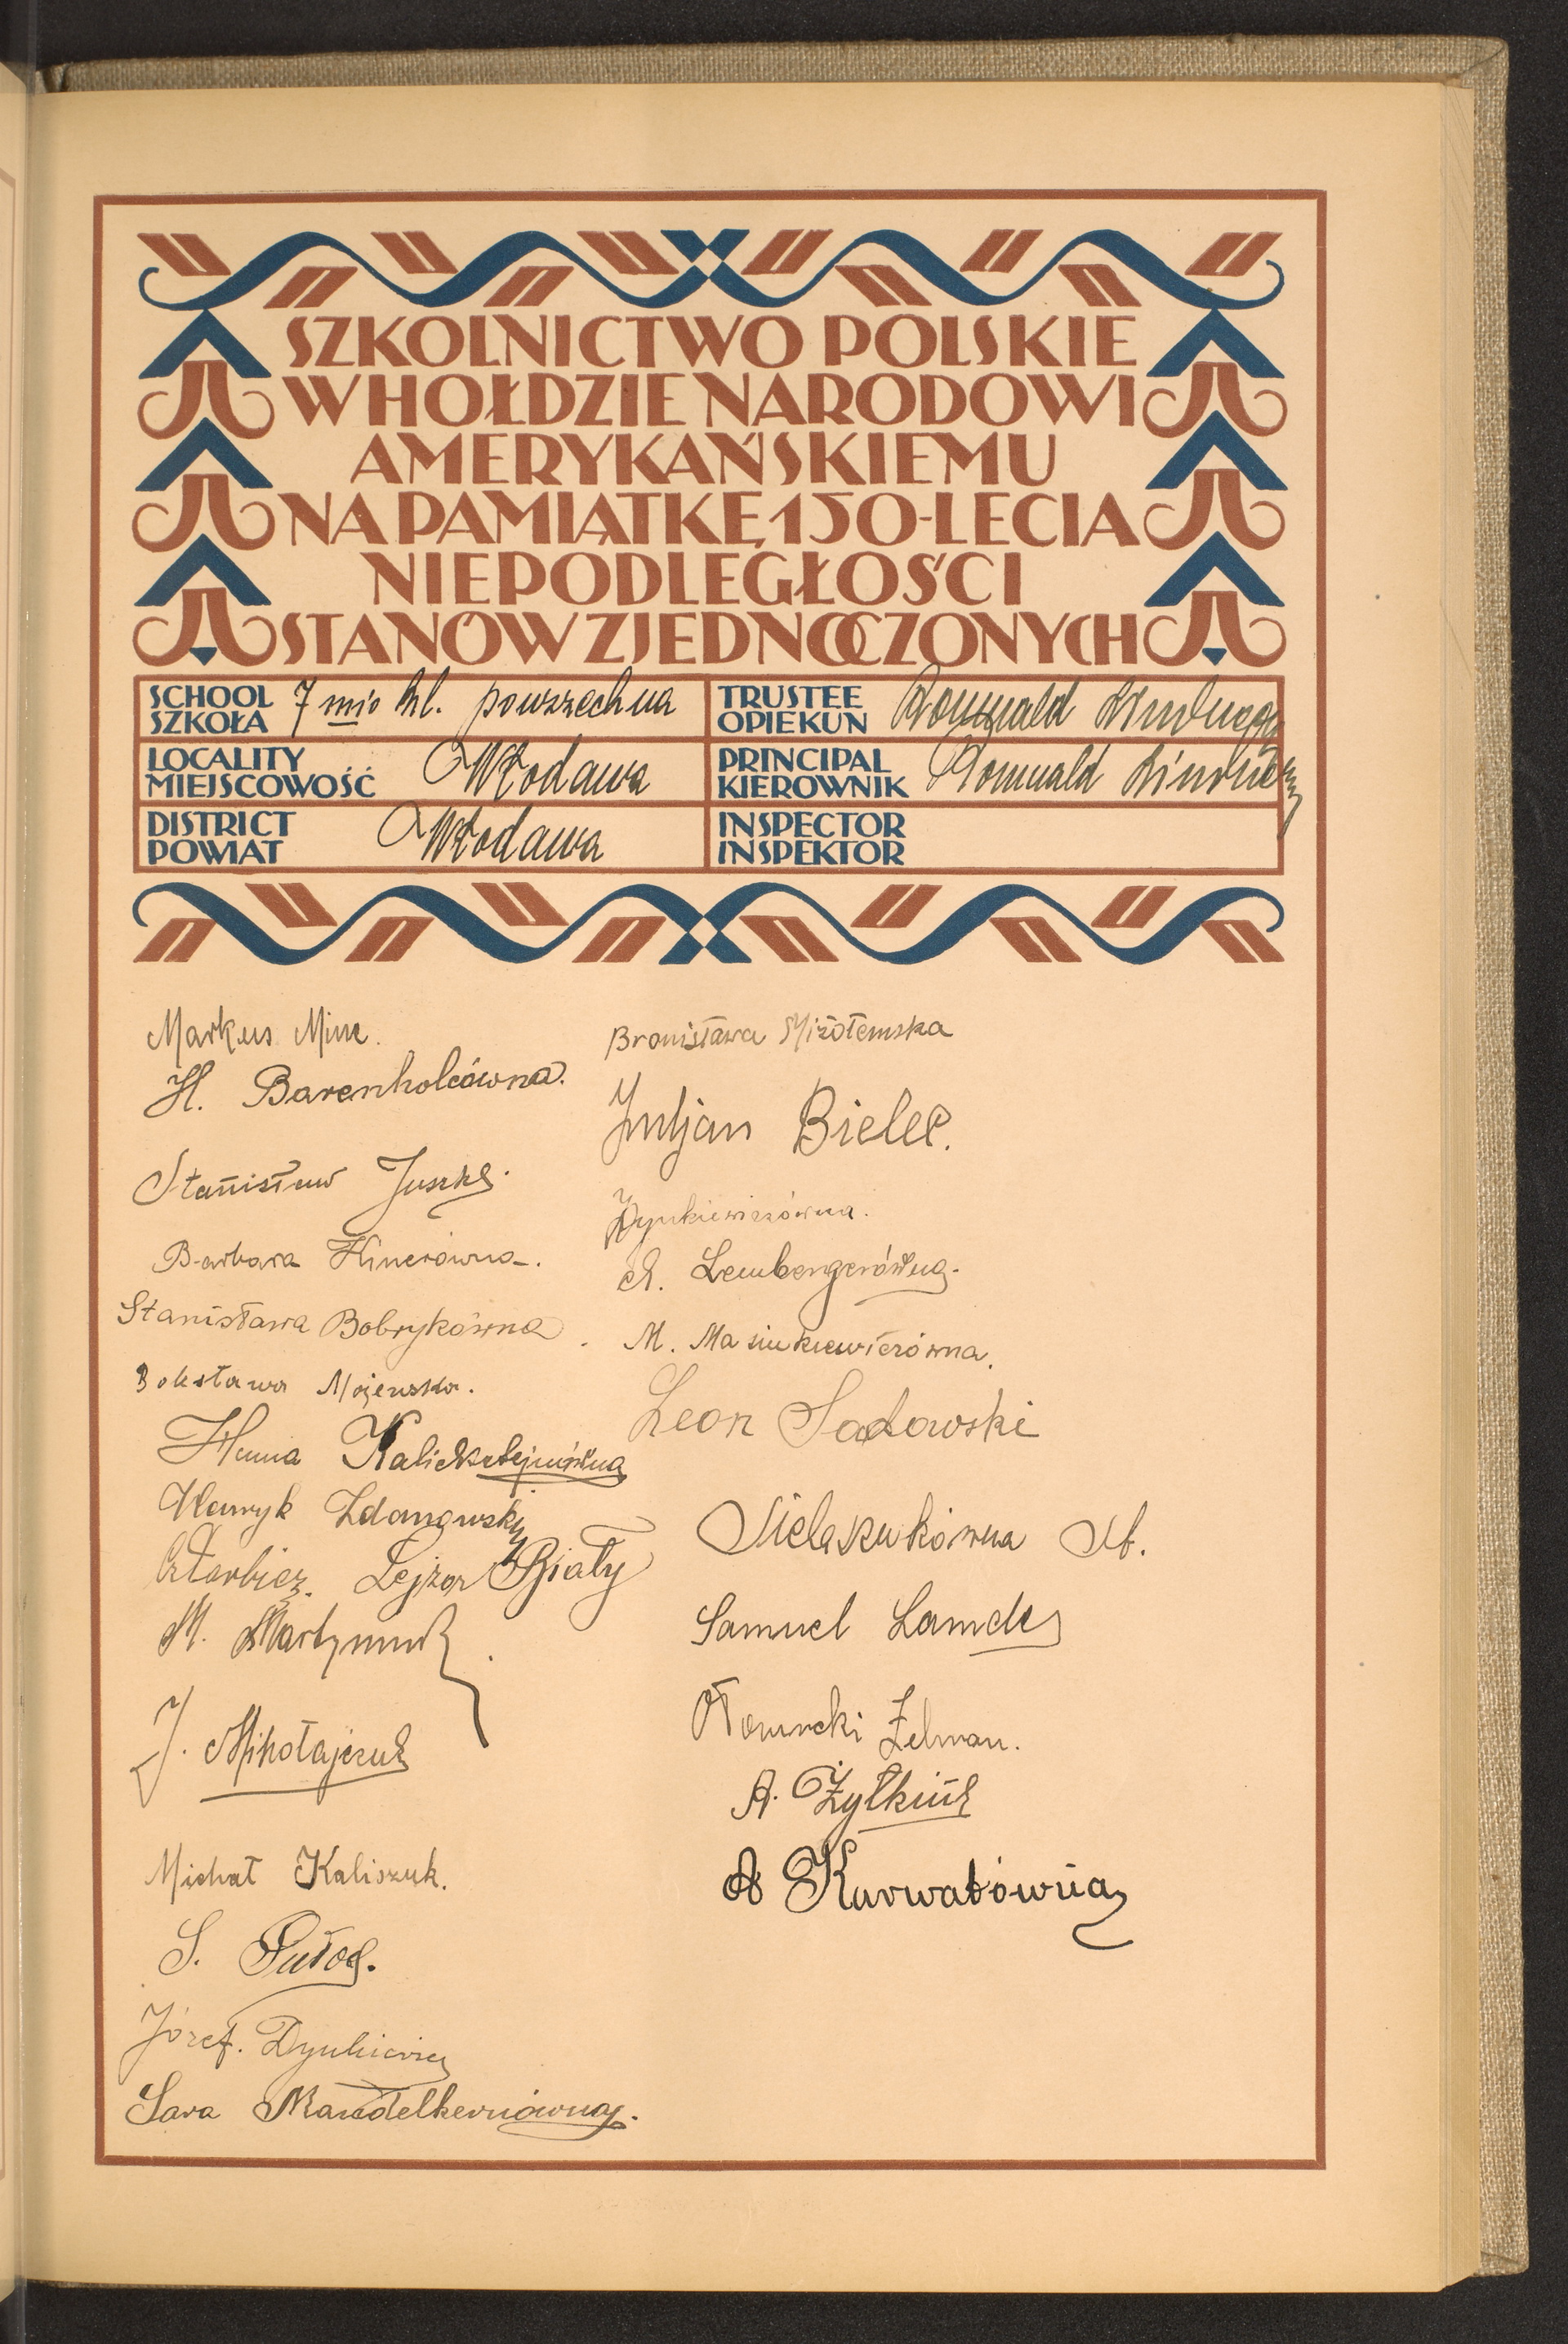 SZKOLNICTWO POLSKIE
W HOŁDZIE NARODOWI
AMERYKAŃSKIEMU
NA PAMIĄTKĘ 150-LECIA
NIEPODLEGŁOŚCI
STANÓW ZJEDNOCZONYCH
SCHOOL
SZKOŁA
7 mio kl. powszechna
TRUSTEE
OPIEKUN
Romuald
LOCALITY
MIEJSCOWOŚĆ
Włodawa
PRINCIPAL
KIEROWNIK
Romuald
DISTRICT
POWIAT
Włodawa
INSPECTOR
INSPEKTOR
Markus Minc.
H. Barenholcówna.
Stanisław
Barbara
Stanisława Bobrykówna.
Bolesława Majewska.
Henryk Zdanowski
Lejzor Biały
M. Martyniuk.
J. Mikołajczuk
Michał Kaliszuk.
S.
Józef. Dynkiewicz
Sara Mandelkernówna.
Bronisława
Juljan Bielec.
Dynkiewiczówna.
Lembergerówna.
M. Masiukiewiczówna.
Leon Sadowski
Sielaszukówna
Samuel
Zelman.
A.
A Kurwatówna